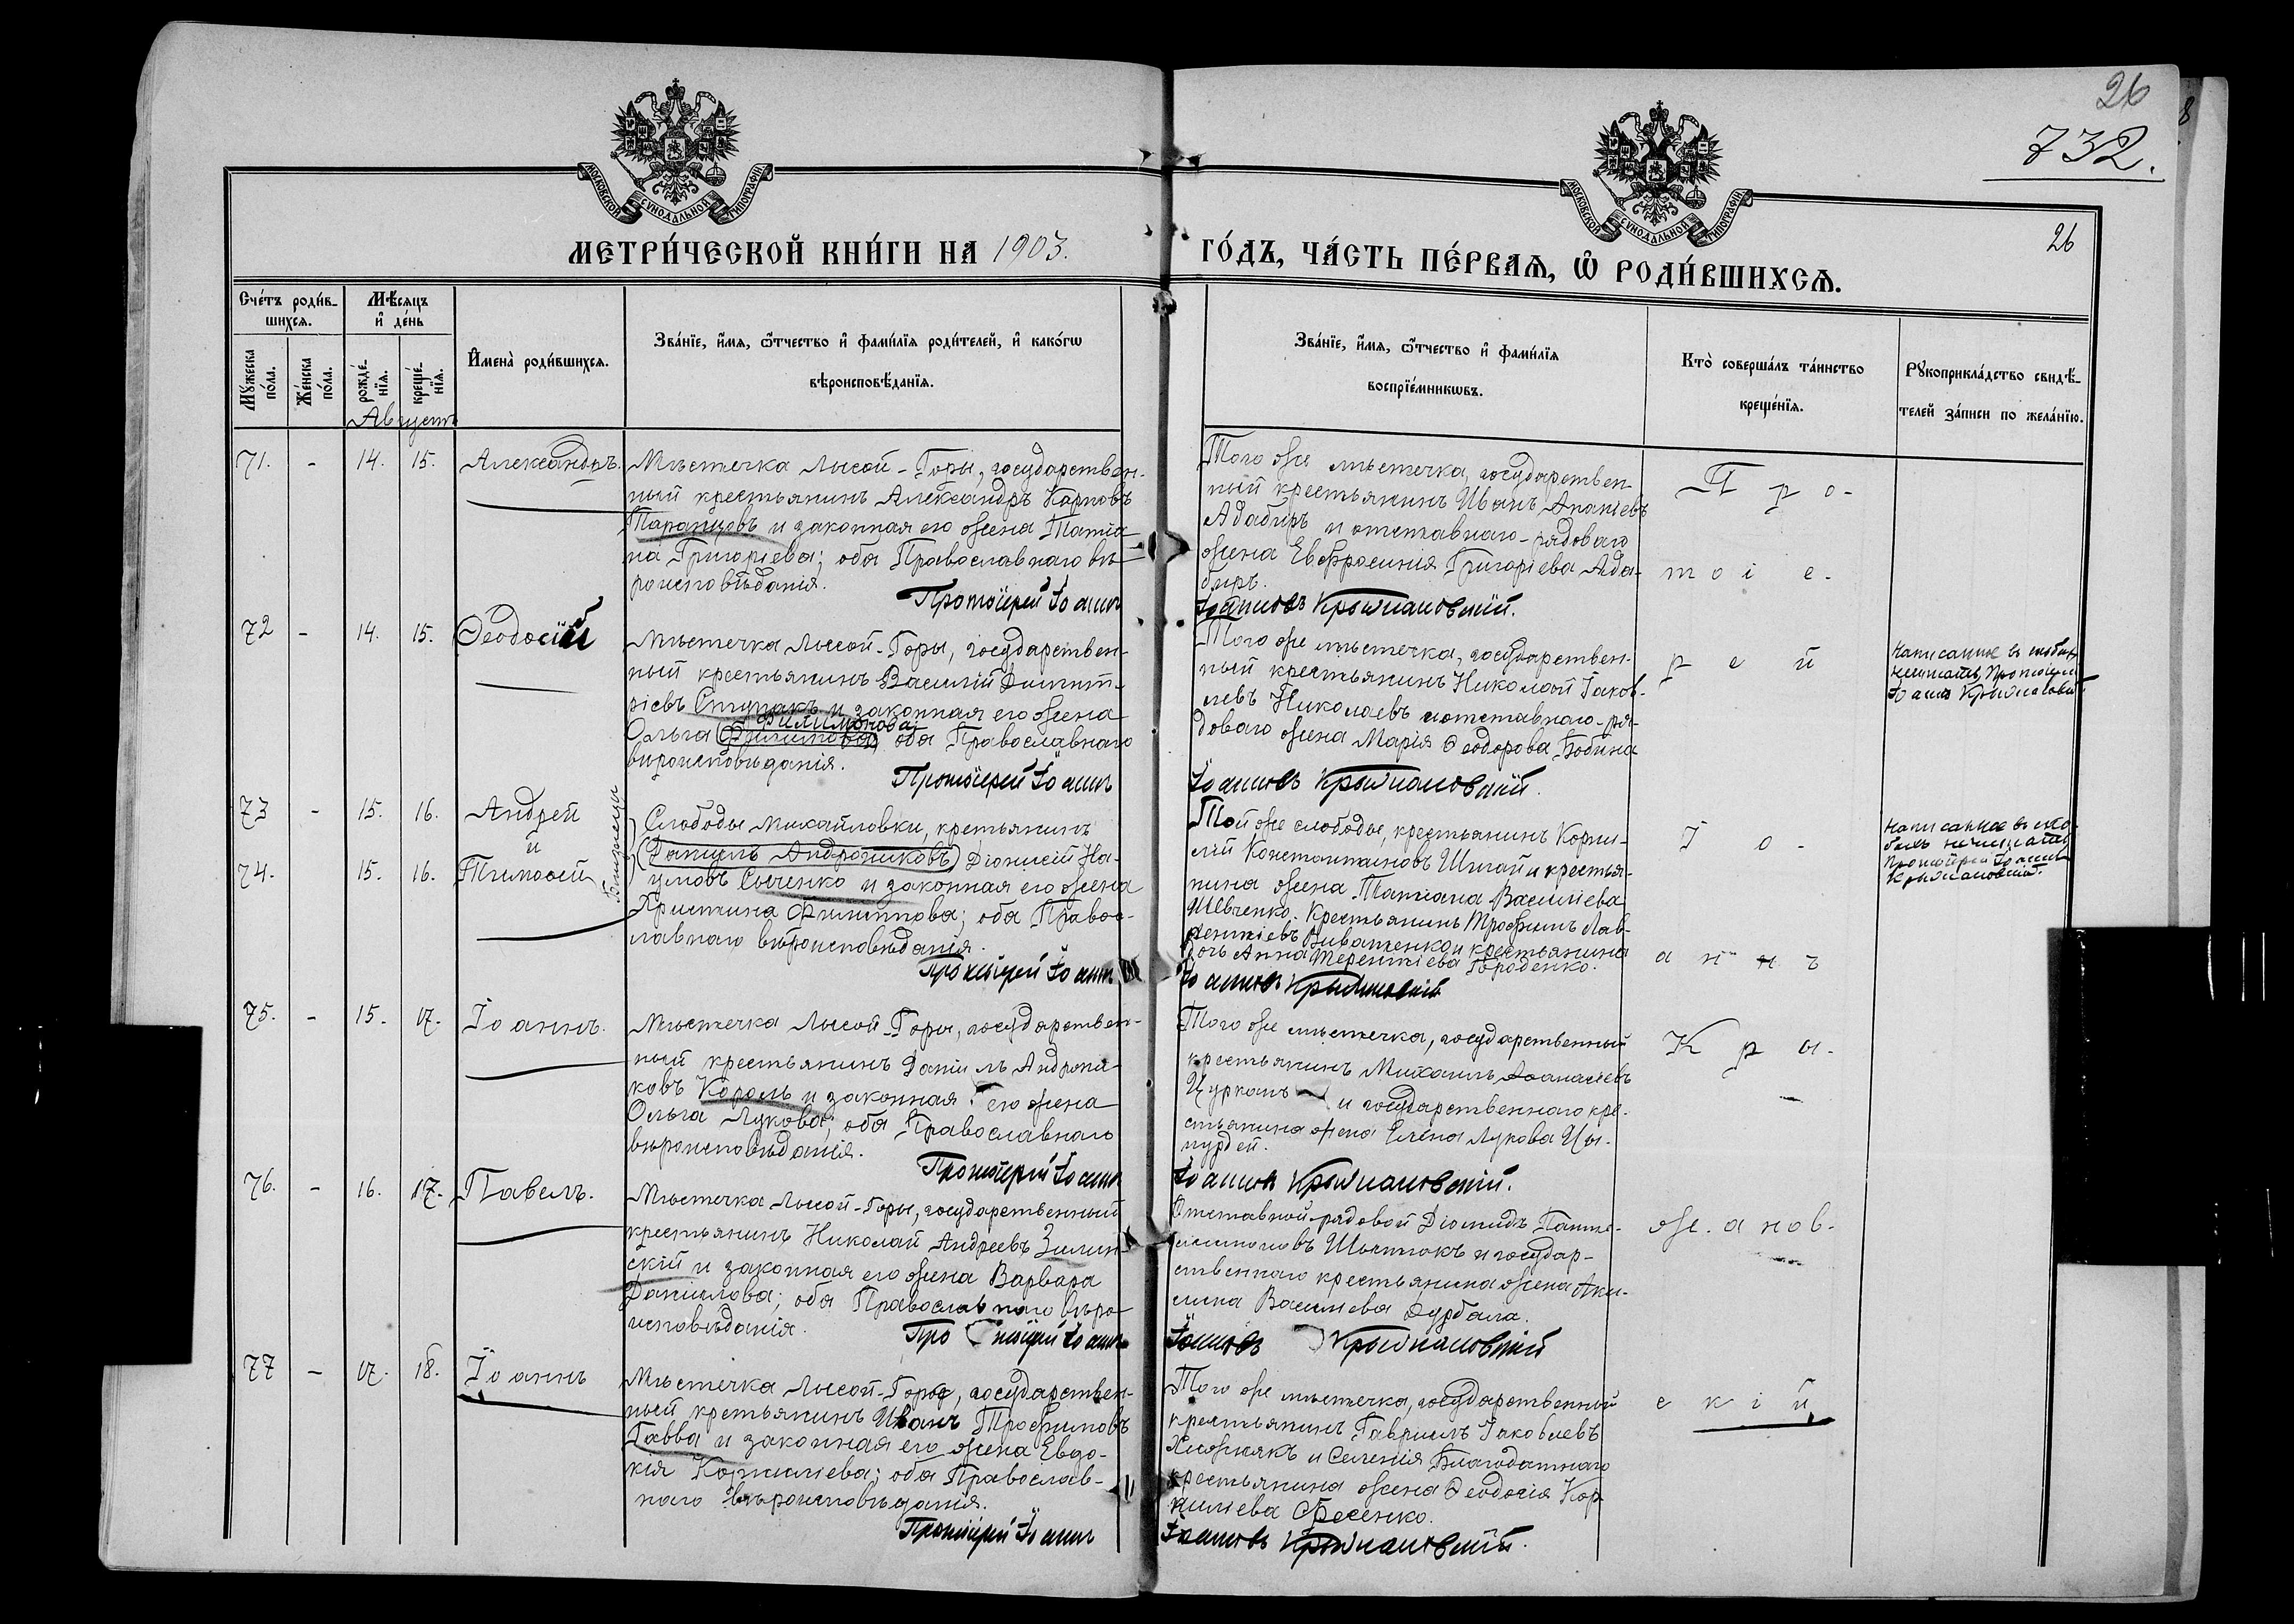 26
732.
МОСКОВСКОЙ СѴНОДАЛЬНОЙ ТИПОГРАФІИ
МОСКОВСКОЙ СѴНОДАЛЬНОЙ ТИПОГРАФІИ
МЕТРИ́ЧЕСКОЙ КНИ́ГИ НА 1903.
ГО́ДЪ, ЧА́СТЬ ПЕ́РВАѦ, Ѽ РОДИ́ВШИХСѦ.
26
Сче́тъ роди́в-
шихсѧ.
Мѣ́сѧцъ
и҆ де́нь
Мꙋ́жеска
по́ла.
Же́нска
по́ла.
рожде́-
нїѧ.
креще́-
нїѧ.
И҆мена̀ роди́вшихсѧ.
Зва́нїе, и҆́мѧ, ѻ҆́тчество и҆ фами́лїѧ роди́телей, и҆ како́гѡ
вѣроисповѣ́данїѧ.
Зва́нїе, и҆́мѧ, ѻ҆́тчество и҆ фами́лїѧ
воспрїе́мникѡвъ.
Кто̀ соверша́лъ та́инство
креще́нїѧ.
Рꙋкоприкла́дство свидѣ́-
телей за́писи по жела́нїю.
Августъ
71. - 14. 15. Александръ.
Мѣстечка Лысой-Горы, государствен-
ный крестьянинъ Александръ Карповъ
Таранцовъ и законная его жена Татіа-
на Григоріева; оба Православнаго вѣ-
роисповѣданія.
Протоіерей Іоаннъ
Того же мѣстечка, государствен-
ный крестьянинъ Иванъ Ананіевъ
Адабиръ и отставнаго-рядоваго
жена Евфросинія Григоріева Ада-
биръ.
Іоанновъ Крыжановскій.
Про-
72 - 14. 15. Ѳеодосій
Мѣстечка Лысой-Горы, государствен-
ный крестьянинъ Василій Димит-
ріевъ Ступакъ и законная его жена
Филимонова
Ольга (Филипова) оба Православнаго
вѣроисповѣданія.
Протоіерей Іоаннъ
Того же мѣстечка, государствен-
ный крестьянинъ Николай Іаков-
левъ Николаевъ и отставнаго-ря-
доваго жена Марія Ѳеодорова Бобина
Іоанновъ Крыжановскій.
тоіе-
рей
Написанное въ скобкахъ
нечитать, Протоіерей
Іоаннъ Крыжановскій
73 - 15. 16. Андрей
и
74. 15. 16. Тимоѳей
близнецы
Слободы Михайловки, крестьянинъ
(Даніилъ Андрониковъ) Діонисій На-
умовъ Сыченко и законная его жена
Христина Филиппова; оба Правос-
лавнаго вѣроисповѣданія.
Протоіерей Іоаннъ
Той же слободы, крестьянинъ Корни-
лій Константиновъ Шмай и крестья-
нина жена Татіана Василіева
Шевченко. Крестьянинъ Трофимъ Лав-
рентіевъ Виватенко и крестьянина
дочь Анна Терентіева Городенко.
Іоанновъ Крыжановскій
Іо-
аннъ
Написанное въ ско-
бкахъ нечитать
Протоіерей Іоаннъ
Крыжановскій.
75. - 15. 17. Іоаннъ.
Мѣстечка Лысой-Горы, государствен-
ный крестьянинъ Даніилъ Андрони-
ковъ Король и законная его жена
Ольга Лукова; оба Православнаго
вѣроисповѣданія.
Протоіерей Іоаннъ
Того же мѣстечка, государственный
крестьянинъ Михаилъ Аѳанасіевъ
Цурканъ и государственнаго кре-
стьянина жена Елена Лукова Цы-
пурдей.
Іоанновъ Крыжановскій.
Кры-
76. - 16. 17. Павелъ.
Мѣстечка Лысой-Горы, государственный
крестьянинъ Николай Андреевъ Зилин-
скій и законная его жена Варвара
Даніилова; оба Православнаго вѣро-
исповѣданія.
Протоіерей Іоаннъ
Отставной-рядовой Діомидъ Панте-
леимоновъ Шостокъ и государ-
ственнаго крестьянина жена Аки-
лина Василіева Дурбала.
Іоанновъ Крыжановскій
жанов-
77 - 17. 18. Іоаннъ
Мѣстечка Лысой-Горы, государствен-
ный крестьянинъ Иванъ Трофимовъ
Гавва и законная его жена Евдо-
кія Корниліева; оба Православ-
наго вѣроисповѣданія.
Протоіерей Іоаннъ
Того же мѣстечка, государственный
крестьянинъ Гавріилъ Іаковлевъ
и Селенія Благодатнаго
крестьянина жена Ѳеодосія Кор-
ниліева Фесенко.
Іоанновъ Крыжановскій.
скій.